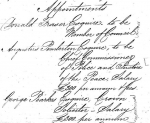 Appointments
Donald Fraser Esquire, to be
Member of Council
Augustus Pemberton Esquire, to be
Chief Commissioner
of Police and Justice
of the Peace Salary
£500 per annum
George Pearkes Esquire, Crown
Solicitor Salary
£300 per annum